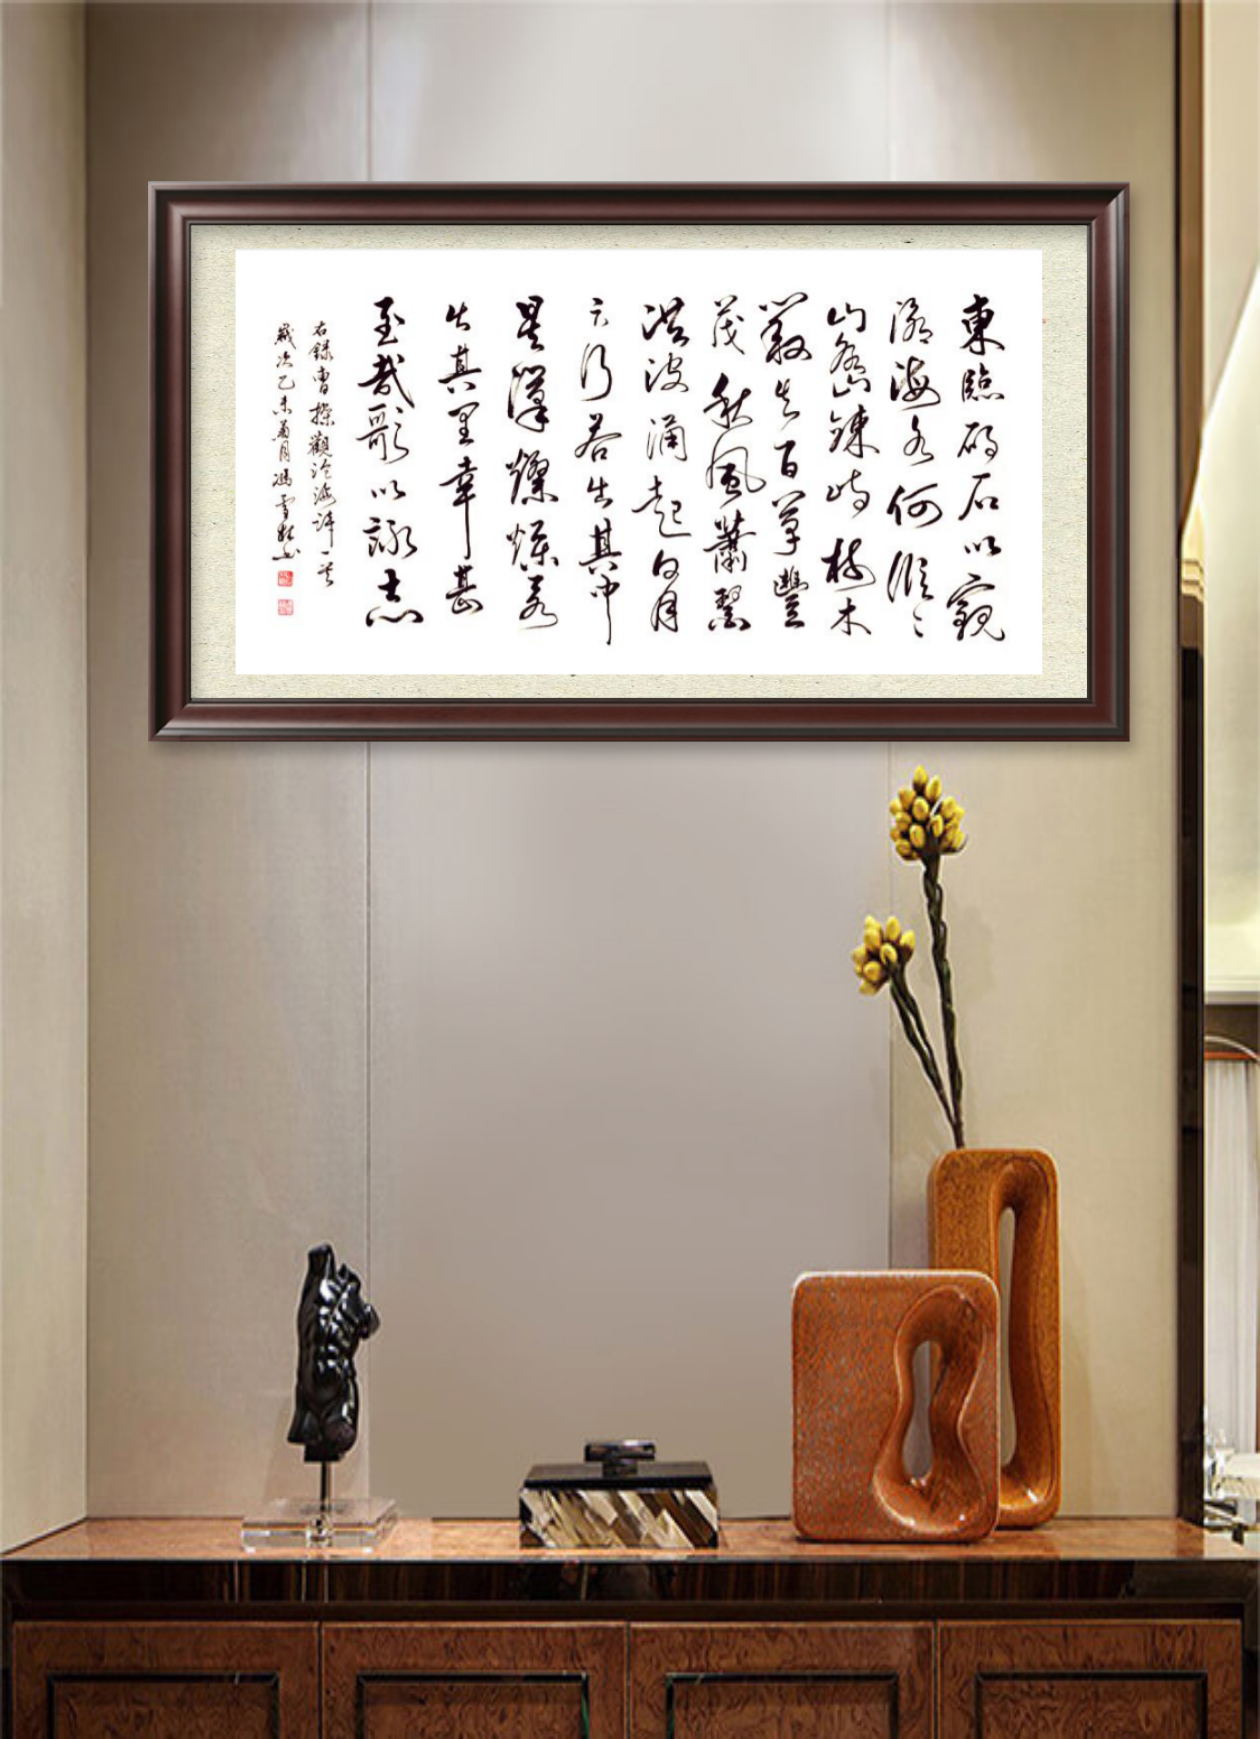 東臨碣石以觀
滄海水何澹〻
山島竦峙樹木
叢生百草豐
茂秋風蕭瑟
洪波涌起日月
之行若出其中
星漢燦爛若
出其里幸甚
至哉歌以詠志
右錄曹操觀滄海詩一首
歲次乙未菊月馮雪書